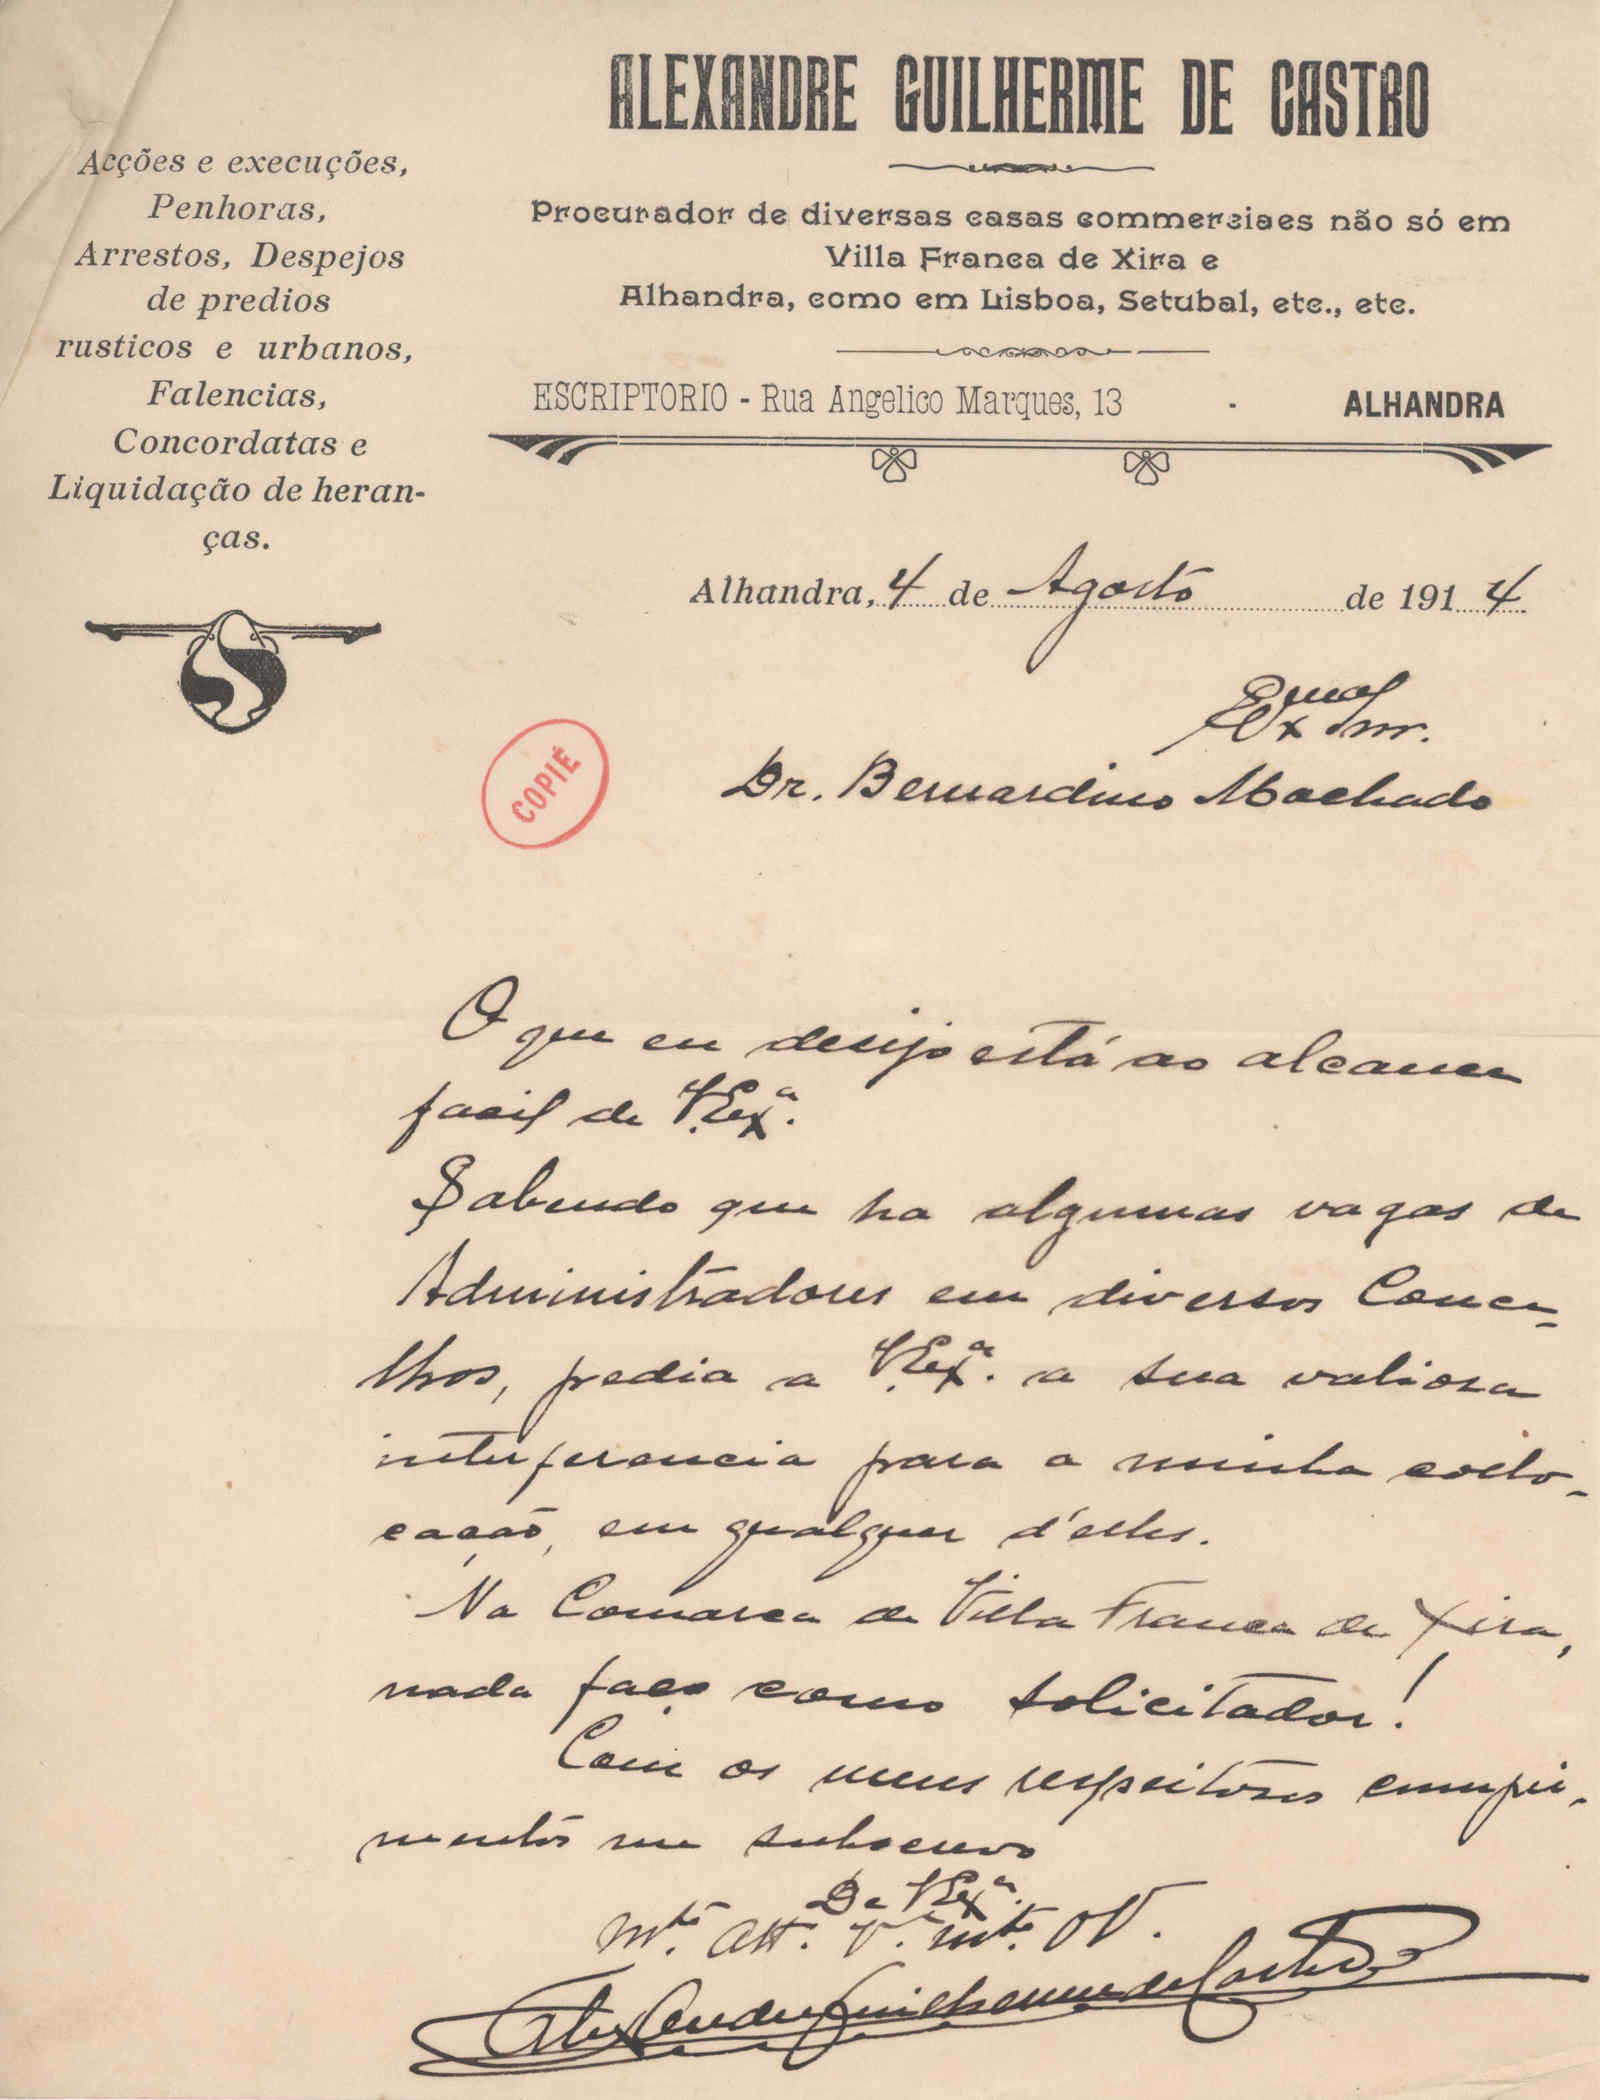 ALEXANDRE GUILHERME DE CASTRO
Procurador de diversas casas commerciaes não só em
Villa Franca de Xira e
Alhandra, como em Lisboa, Setubal, etc., etc.
ESCRIPTORIO - Rua Angelico Marques, 13 - ALHANDRA
Acções e execuções,
Penhoras,
Arrestos, Despejos
de predios
rusticos e urbanos,
Falencias,
Concordatas e
Liquidação de heran-
ças.
Alhandra, 4 de Agosto de 1914
Exmo Snr.
Dr. Bernardino Machado
COPIÉ
O que eu desejo está ao alcance
facil de V. Exª.
Sabendo que ha algumas vagas de
Administradores em diversos Conce-
lhos, pedia a V. Exª. a sua valiosa
interferencia para a minha collo-
cação, em qualquer d'elles.
Na Comarca de Villa Franca de Xira,
nada faço como solicitador!
Com os meus respeitosos cumpri-
mentos me subscrevo
De V. Exª.
Mto. Att. Vor. mto. Obo.
Alexandre Guilherme de Castro